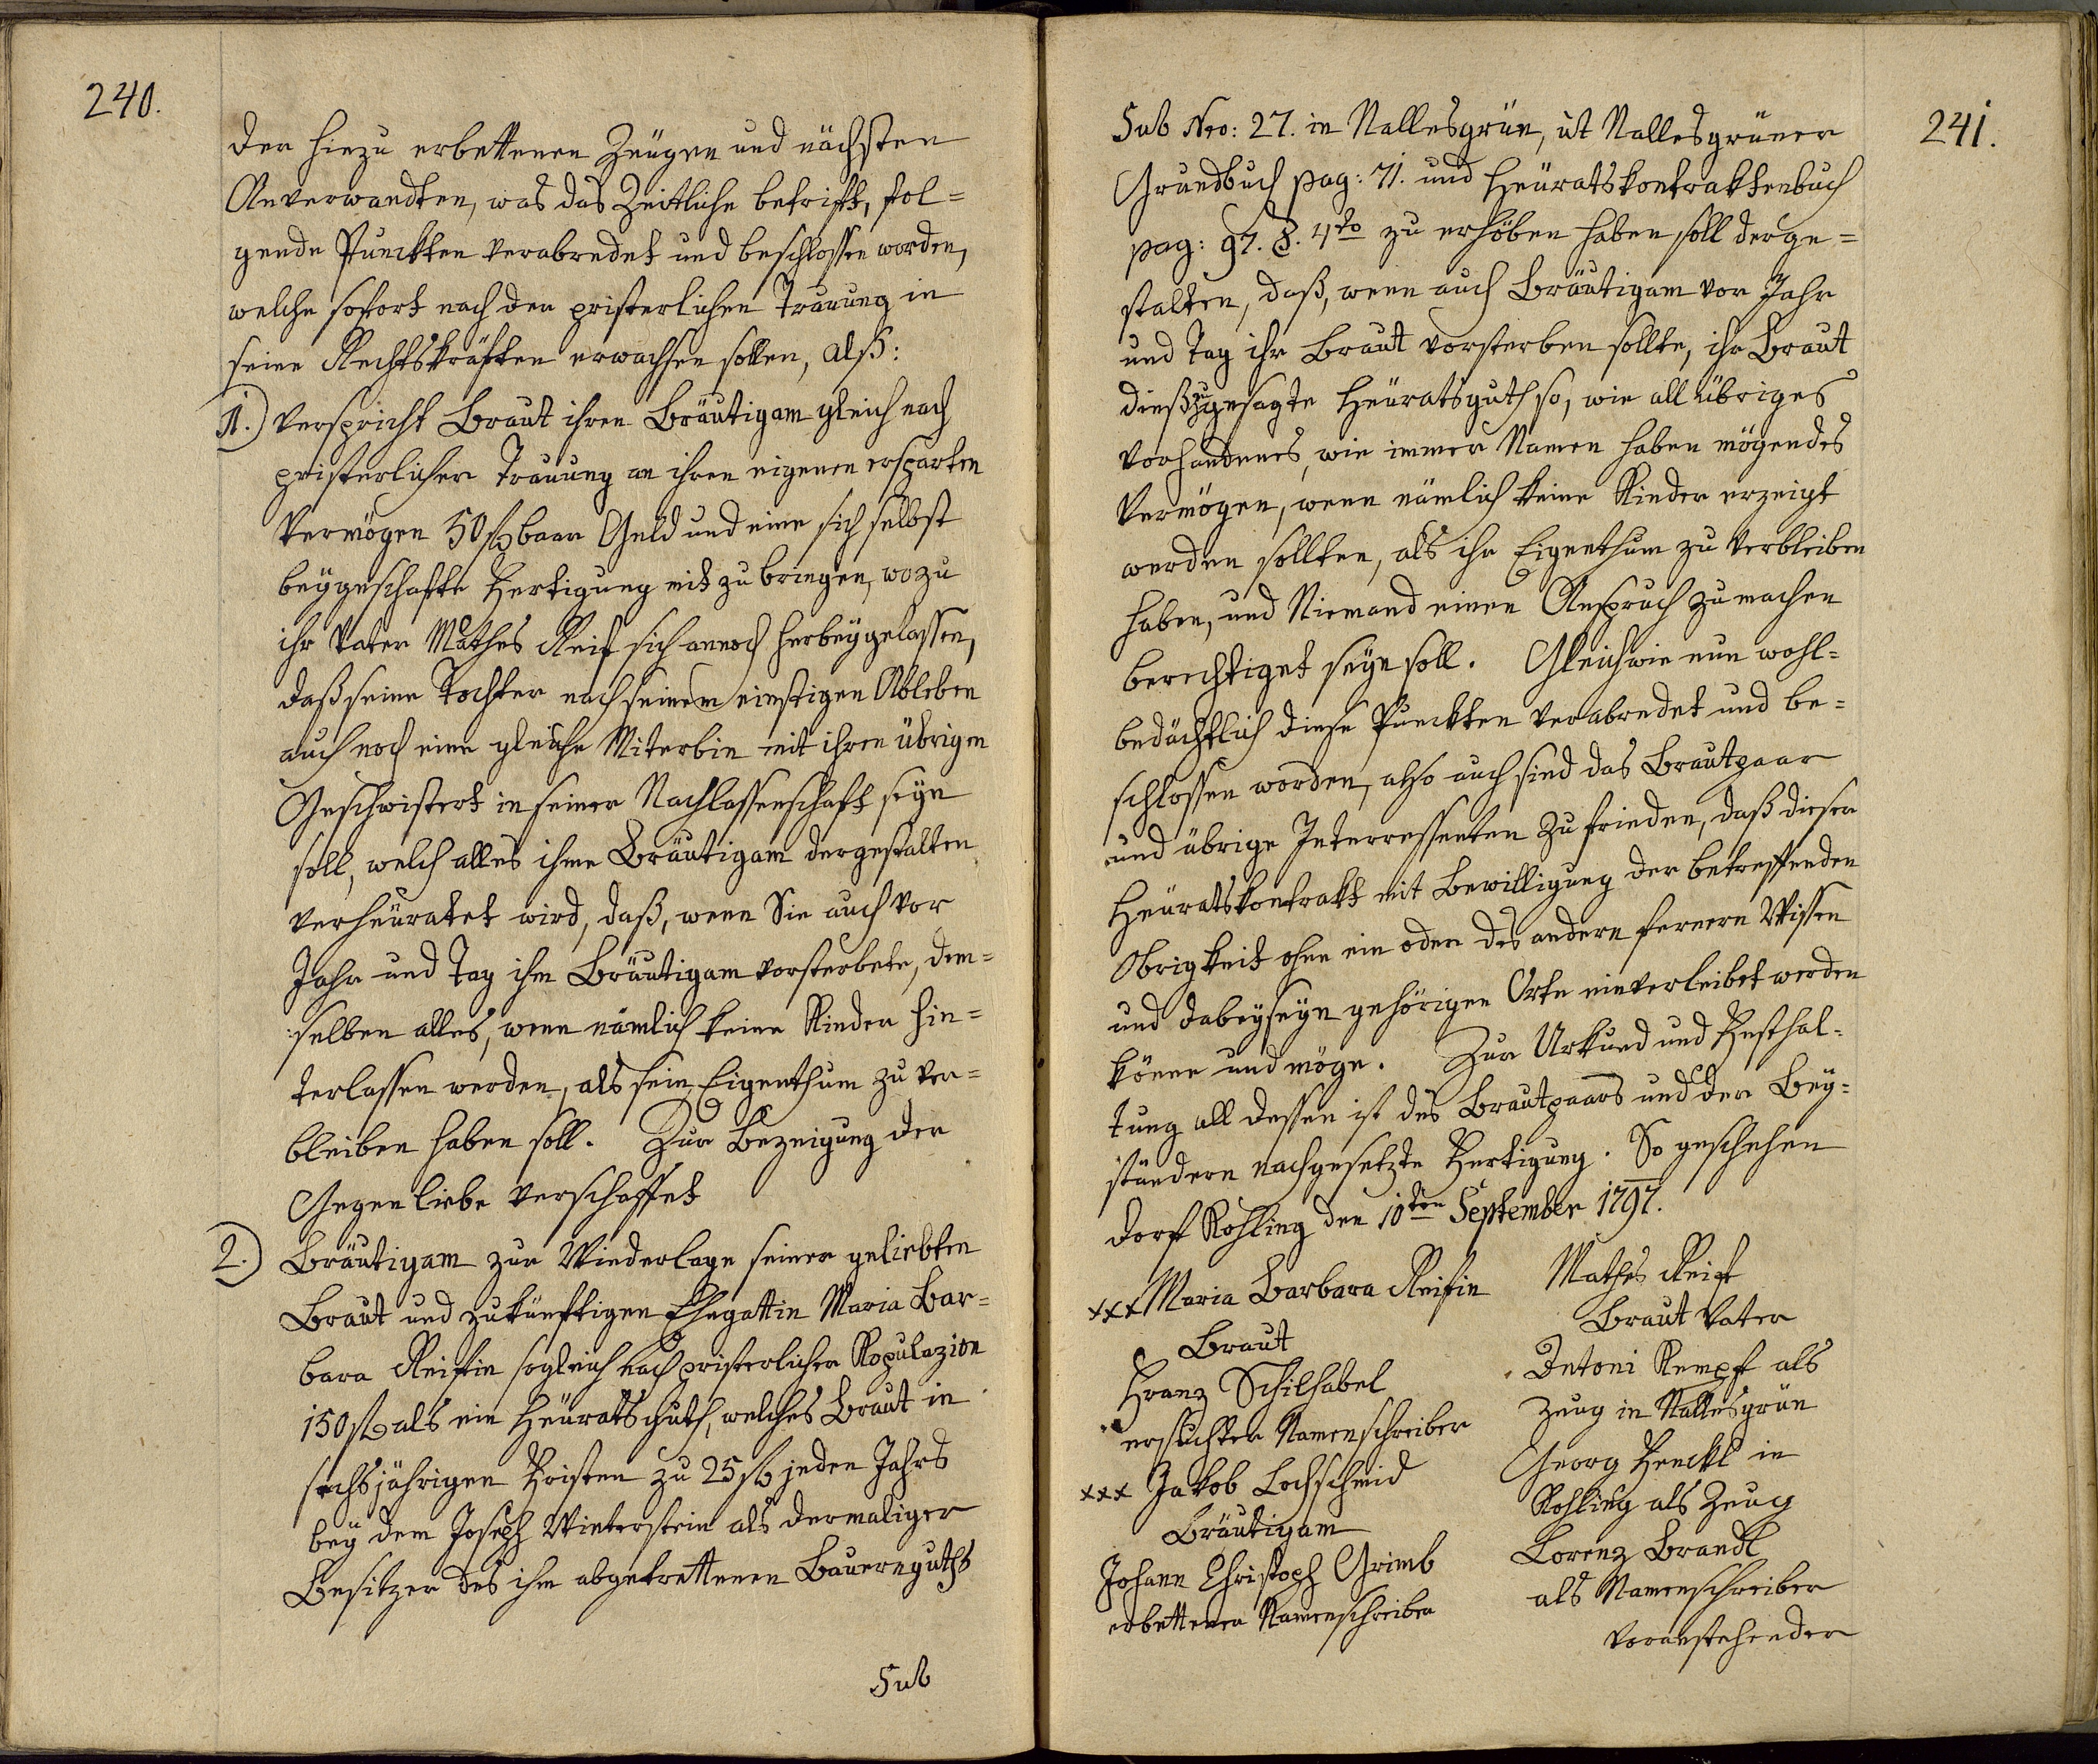 240.
der hiezu erbettenen Zeügen und nächsten
Anverwandten, was das Zeitliche betrifft, fol=
gende Punckten verabredet und beschlossen worden,
welche sofort nach der pristerlichen Trauung in
seine Rechtskräften erwachsen sollen, alß:
1.) verspricht Braut ihren Bräutigam gleich nach
pristerlicher Trauung an ihren eigenen ersparten
Vermögen 50 f baar Geld und eine sich selbst
beygeschafte Fertigung mit zu bringen, wozu
ihr Vater Mathes Reif sich annoch herbeygelassen,
daß seine Tochter nach seinem einstigen Ableben
auch noch eine gleiche Miterbin mit ihren übrigen
Geschwistert in seiner Nachlassenschaft seyn
soll, welch alles ihme Bräutigam dergestalten
verheüratet wird, daß, wenn Sie auch vor
Jahr und Tag ihm Bräutigam vorsterbete, dem=
selben alles, wenn nämlich keine Kinder hin=
terlassen werden, als sein Eigenthum zu ver=
bleiben haben soll. Zur Bezeigung der
Gegenliebe verschaffet
2.) Bräutigam zur Wiederlage seiner geliebten
Braut und zukünftigen Ehegattin Maria Bar=
bara Reifin sogleich nach pristerlicher Kopulazion
150 f als ein Heüratsguth, welches Braut in
sechsjährigen Fristen zu 25 f jeden Jahrs
bey dem Joseph Winterstein als dermaliger
Besitzer des ihm abgetrettenen Bauernguths
Sub
241.
Sub Nro: 27. in Nallesgrün, ut Nallesgrüner
Grundbuch pag: 71. und Heüratskontraktenbuch
pag: 97. §. 4to zu erhöben haben soll derge=
stalten, daß, wenn auch Bräutigam vor Jahr
und Tag ihr Braut vorsterben sollte, ihr Braut
dieß zugesagte Heüratsguth so, wie all übriges
vorhandenes, wie immer Namen haben mögendes
Vermögen, wenn nämlich keine Kinder erzeigt
werden sollten, als ihr Eigenthum zu verbleiben
haben, und Niemand einen Anspruch zu machen
berechtiget seyn soll. Gleichwie nun wohl=
bedächtlich diese Punckten verabredet und be=
schlossen worden, also auch sind das Brautpaar
und übrige Interressenten zufrieden, daß dieser
Heüratskontrakt mit Bewilligung der betreffenden
Obrigkeit ohne ein oder des andern fernern Wissen
und dabeyseyn gehörigen Orte einverleibet werden
könne und möge. Zur Urkund und Festhal=
tung all dessen ist des Brautpaars und der Bey=
ständern nachgesetzte Fertigung. So geschehen
Dorf Kohling den 10ten September 1797.
xxx Maria Barbara Reifin
Braut
Franz Schilhabel
ersuchter Namenschreiber
xxx Jakob Lochschmid
Bräutigam
Johann Christoph Grimb
erbettener Namenschreiber
Mathes Reif
Braut Vater
Antoni Kempf als
Zeug in Nallesgrün
Georg Henckl in
Kohling als Zeug
Lorenz Brandl
als Namenschreiber
voranstehender